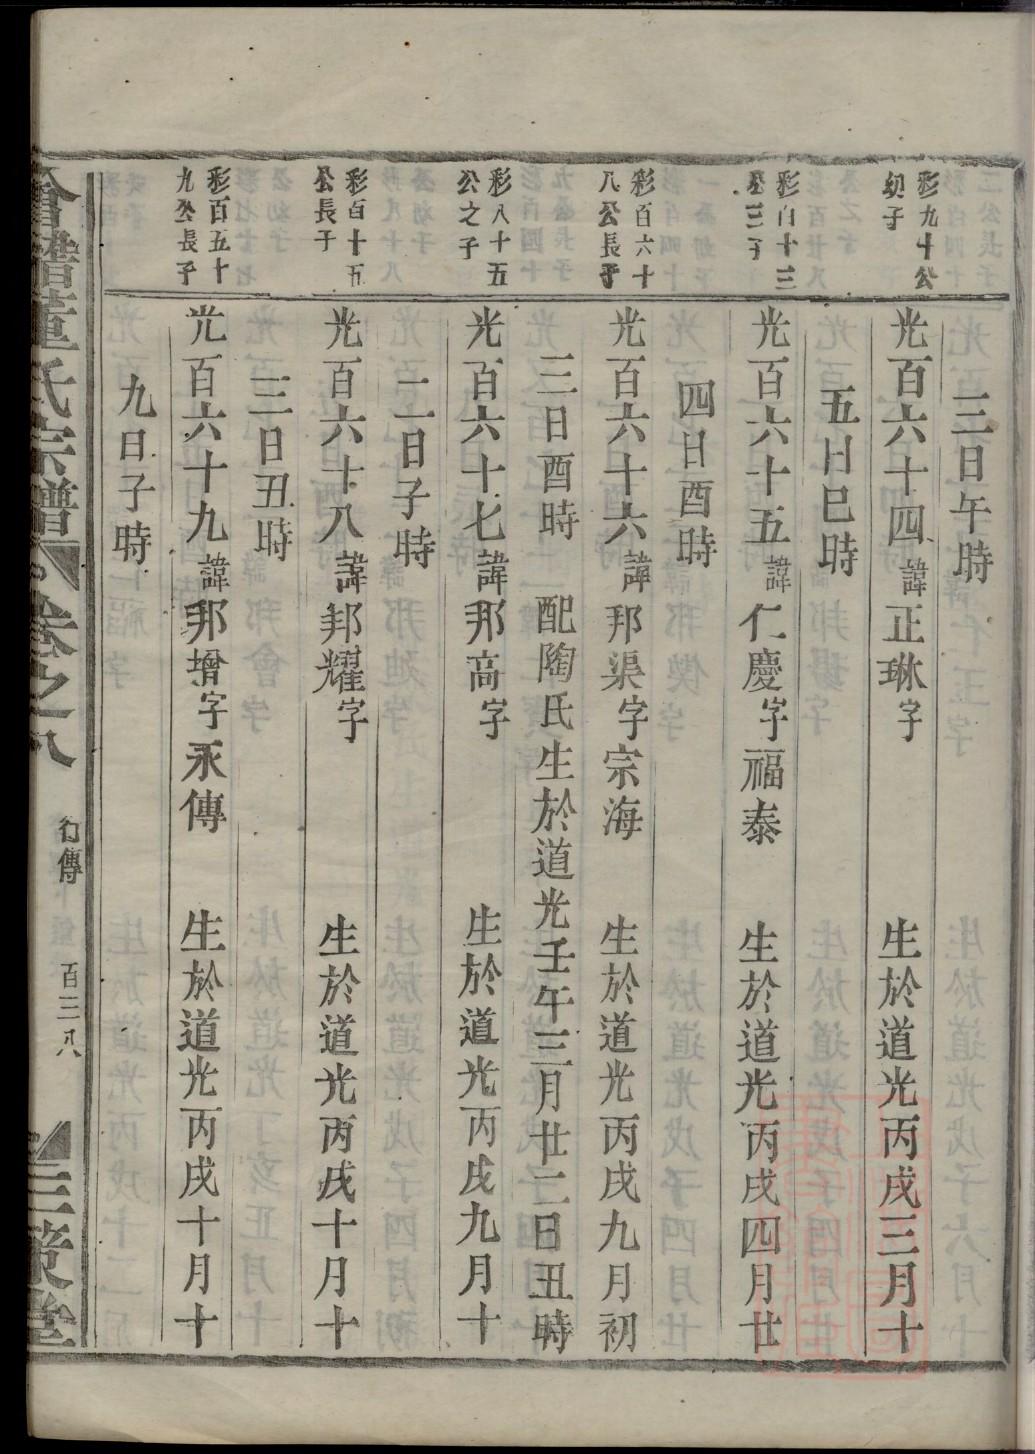 三日午時
彩九十公
幼子
光百六十四諱正琳字 生於道光丙戌三月十
五日巳時
彩百十三
公三子
光百六十五諱仁慶字福泰 生於道光丙戌四月廿
四日酉時
彩百六十
八公長子
光百六十六諱邦渠字宗海 生於道光丙戌九月初
三日酉時 配陶氏生於道光壬午三月廿二日丑時
彩八十五
公之子
光百六十七諱邦高字 生於道光丙戌九月十
二日子時
彩百十五
公長子
光百六十八諱邦耀字 生於道光丙戌十月十
三日丑時
彩百五十
九公長子
光百六十九諱邦增字永傳 生於道光丙戌十月十
九日子時
會稽董氏宗譜 卷之八 行傳 百三八 三策堂